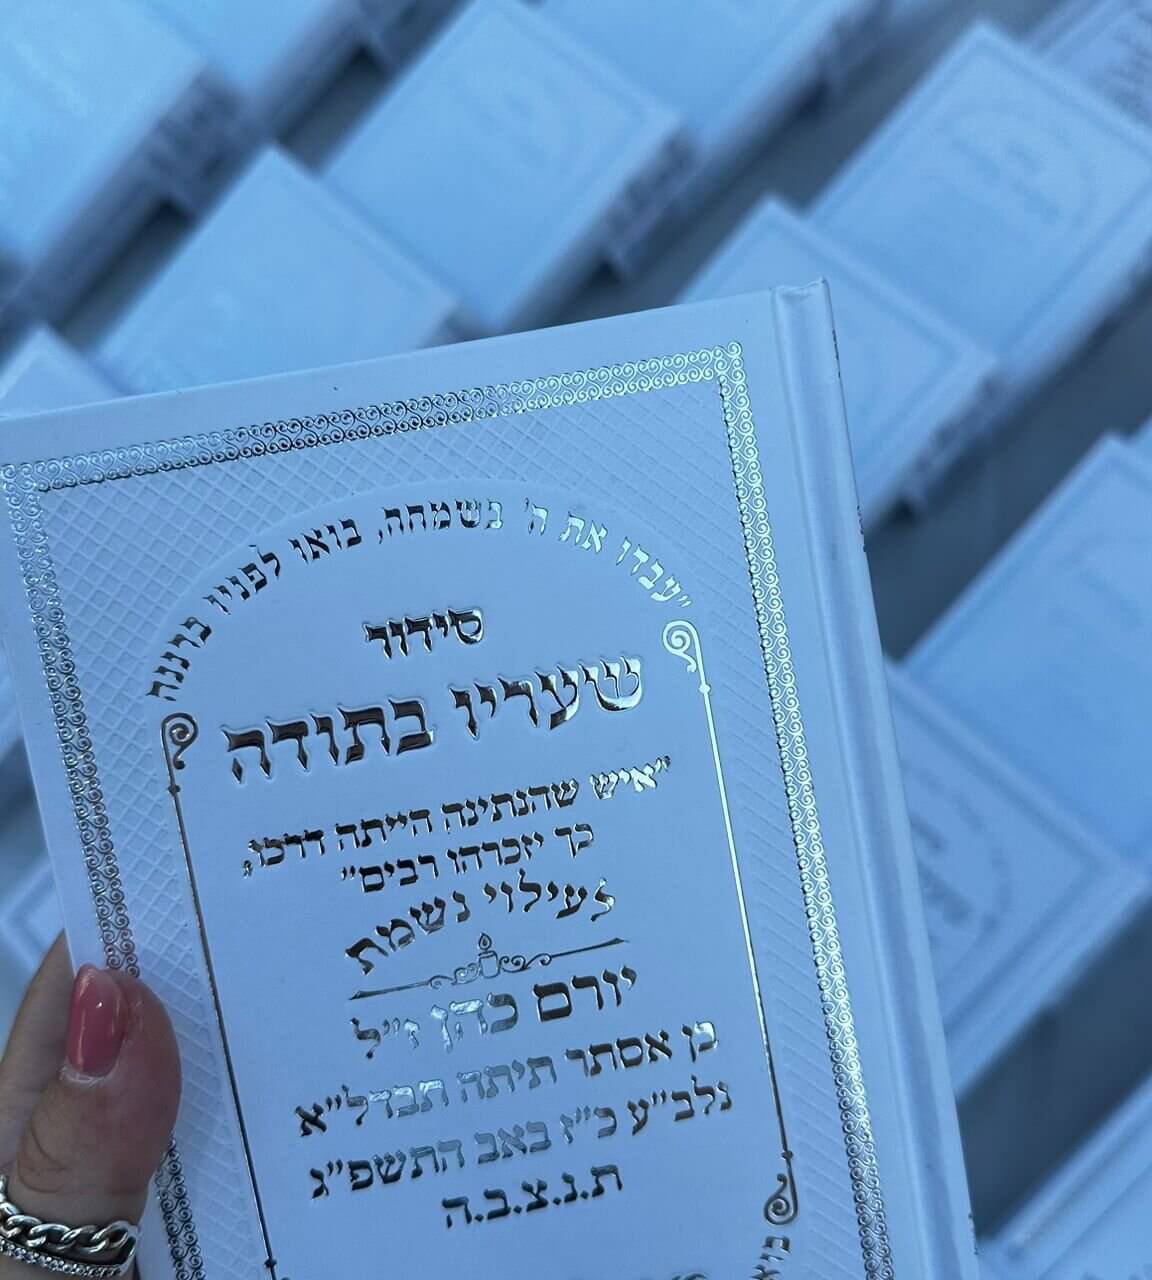 "עבדו את ה' בשמחה, בואו לפניו ברננה
סידור
שעריו בתודה
"איש שהנתינה הייתה דרכו,
כך יזכרהו רבים"
לעילוי נשמת
יורם כהן ז"ל
בן אסתר תיתה תבדל"א
נלב"ע כ"ז באב התשפ"ג
ת.נ.צ.ב.ה